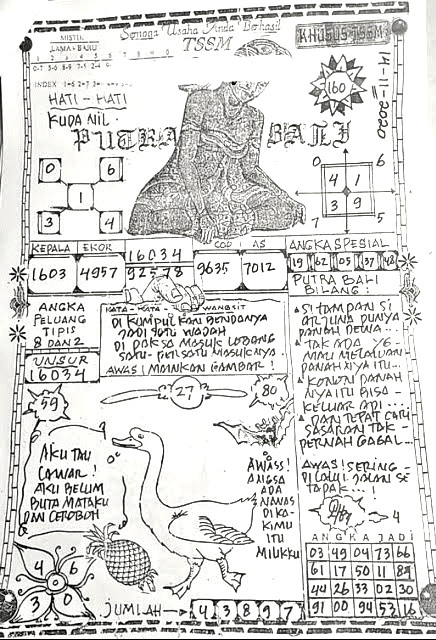 Semoga Usaha Anda Berhasil
TSSM
KHUSUS TSSM
MISTIK
LAMA - BARU
INDEX
14-11-2020
160
HATI - HATI
KUDA NIL
PUTRA BALI
0 6
1
3 4
0 6
4 1
3 9
7 5
KEPALA EKOR
1603 4957
16034
92578
COD I AS
9635 7012
ANGKA SPESIAL
19 62 05 37 48
ANGKA
PELUANG
TIPIS
8 DAN 2
UNSUR
16034
KATA - KATA WANGSIT
DI KUMPULKAN BENDANYA
JADI SATU WADAH
DI PAKSA MASUK LOBANG
SATU - PERSATU MASUKNYA
AWAS! MAINKAN GAMBAR!
PUTRA BALI
BILANG:
SI TAMPAN SI
ARJUNA PUNYA
PANAH DEWA...
TAK ADA YG
MAU MELAWAN
PANAH NYA ITU...
KONON PANAH
NYA ITU BISA
KELUAR API...
DAN TEPAT CARI
SASARAN TAK
PERNAH GAGAL...
AWAS! SERING
DI LALUI JALAN SE
TAPAK...!
59
27
80
AKU TAU
CAWAR!
AKU BELUM
BUTA MATAKU
DAN CEROBOH
AWASS!
ANGSA
ADA
NANAS
DI KA
KIMU
ITU
MILIKKU
4
4 6
3 0
JUMLAH → 43897
ANGKA JADI
03 49 04 73 66
61 17 50 11 89
44 26 33 02 30
91 00 94 53 16